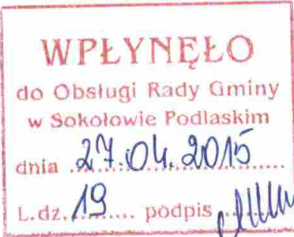 WPŁYNĘŁO
do Obsługi Rady Gminy
w Sokołowie Podlaskim
dnia 27.04.2015
L.dz. 19 podpis